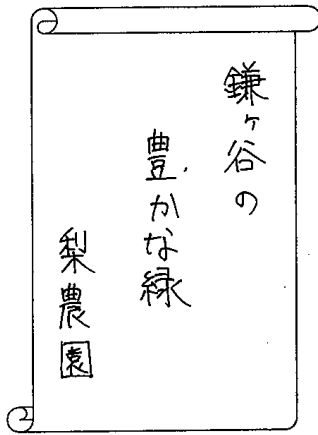 鎌ヶ谷の
豊かな緑
梨農園